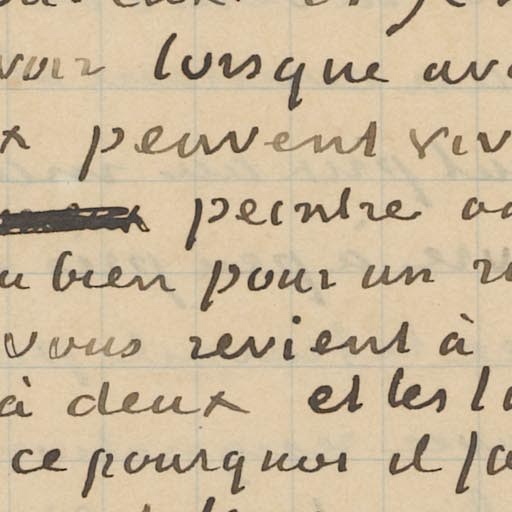 voir lorsque
peuvent
peintre
bien pour un
vous revient à
à deux et les
ce pourquoi il